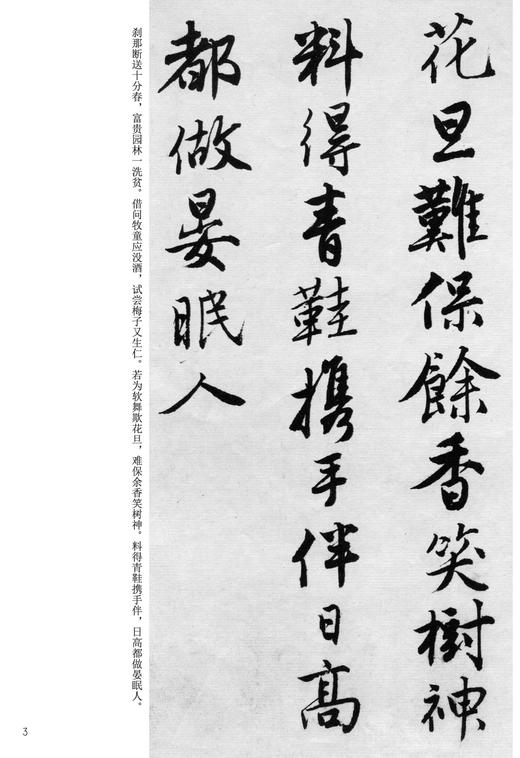 花旦難保餘香笑樹神
料得青鞋携手伴日高
都做晏眠人
刹那断送十分春，富贵园林一洗贫。借问牧童应没酒，试尝梅子又生仁。若为软舞欺花旦，难保余香笑树神。料得青鞋携手伴，日高都做晏眠人。
3